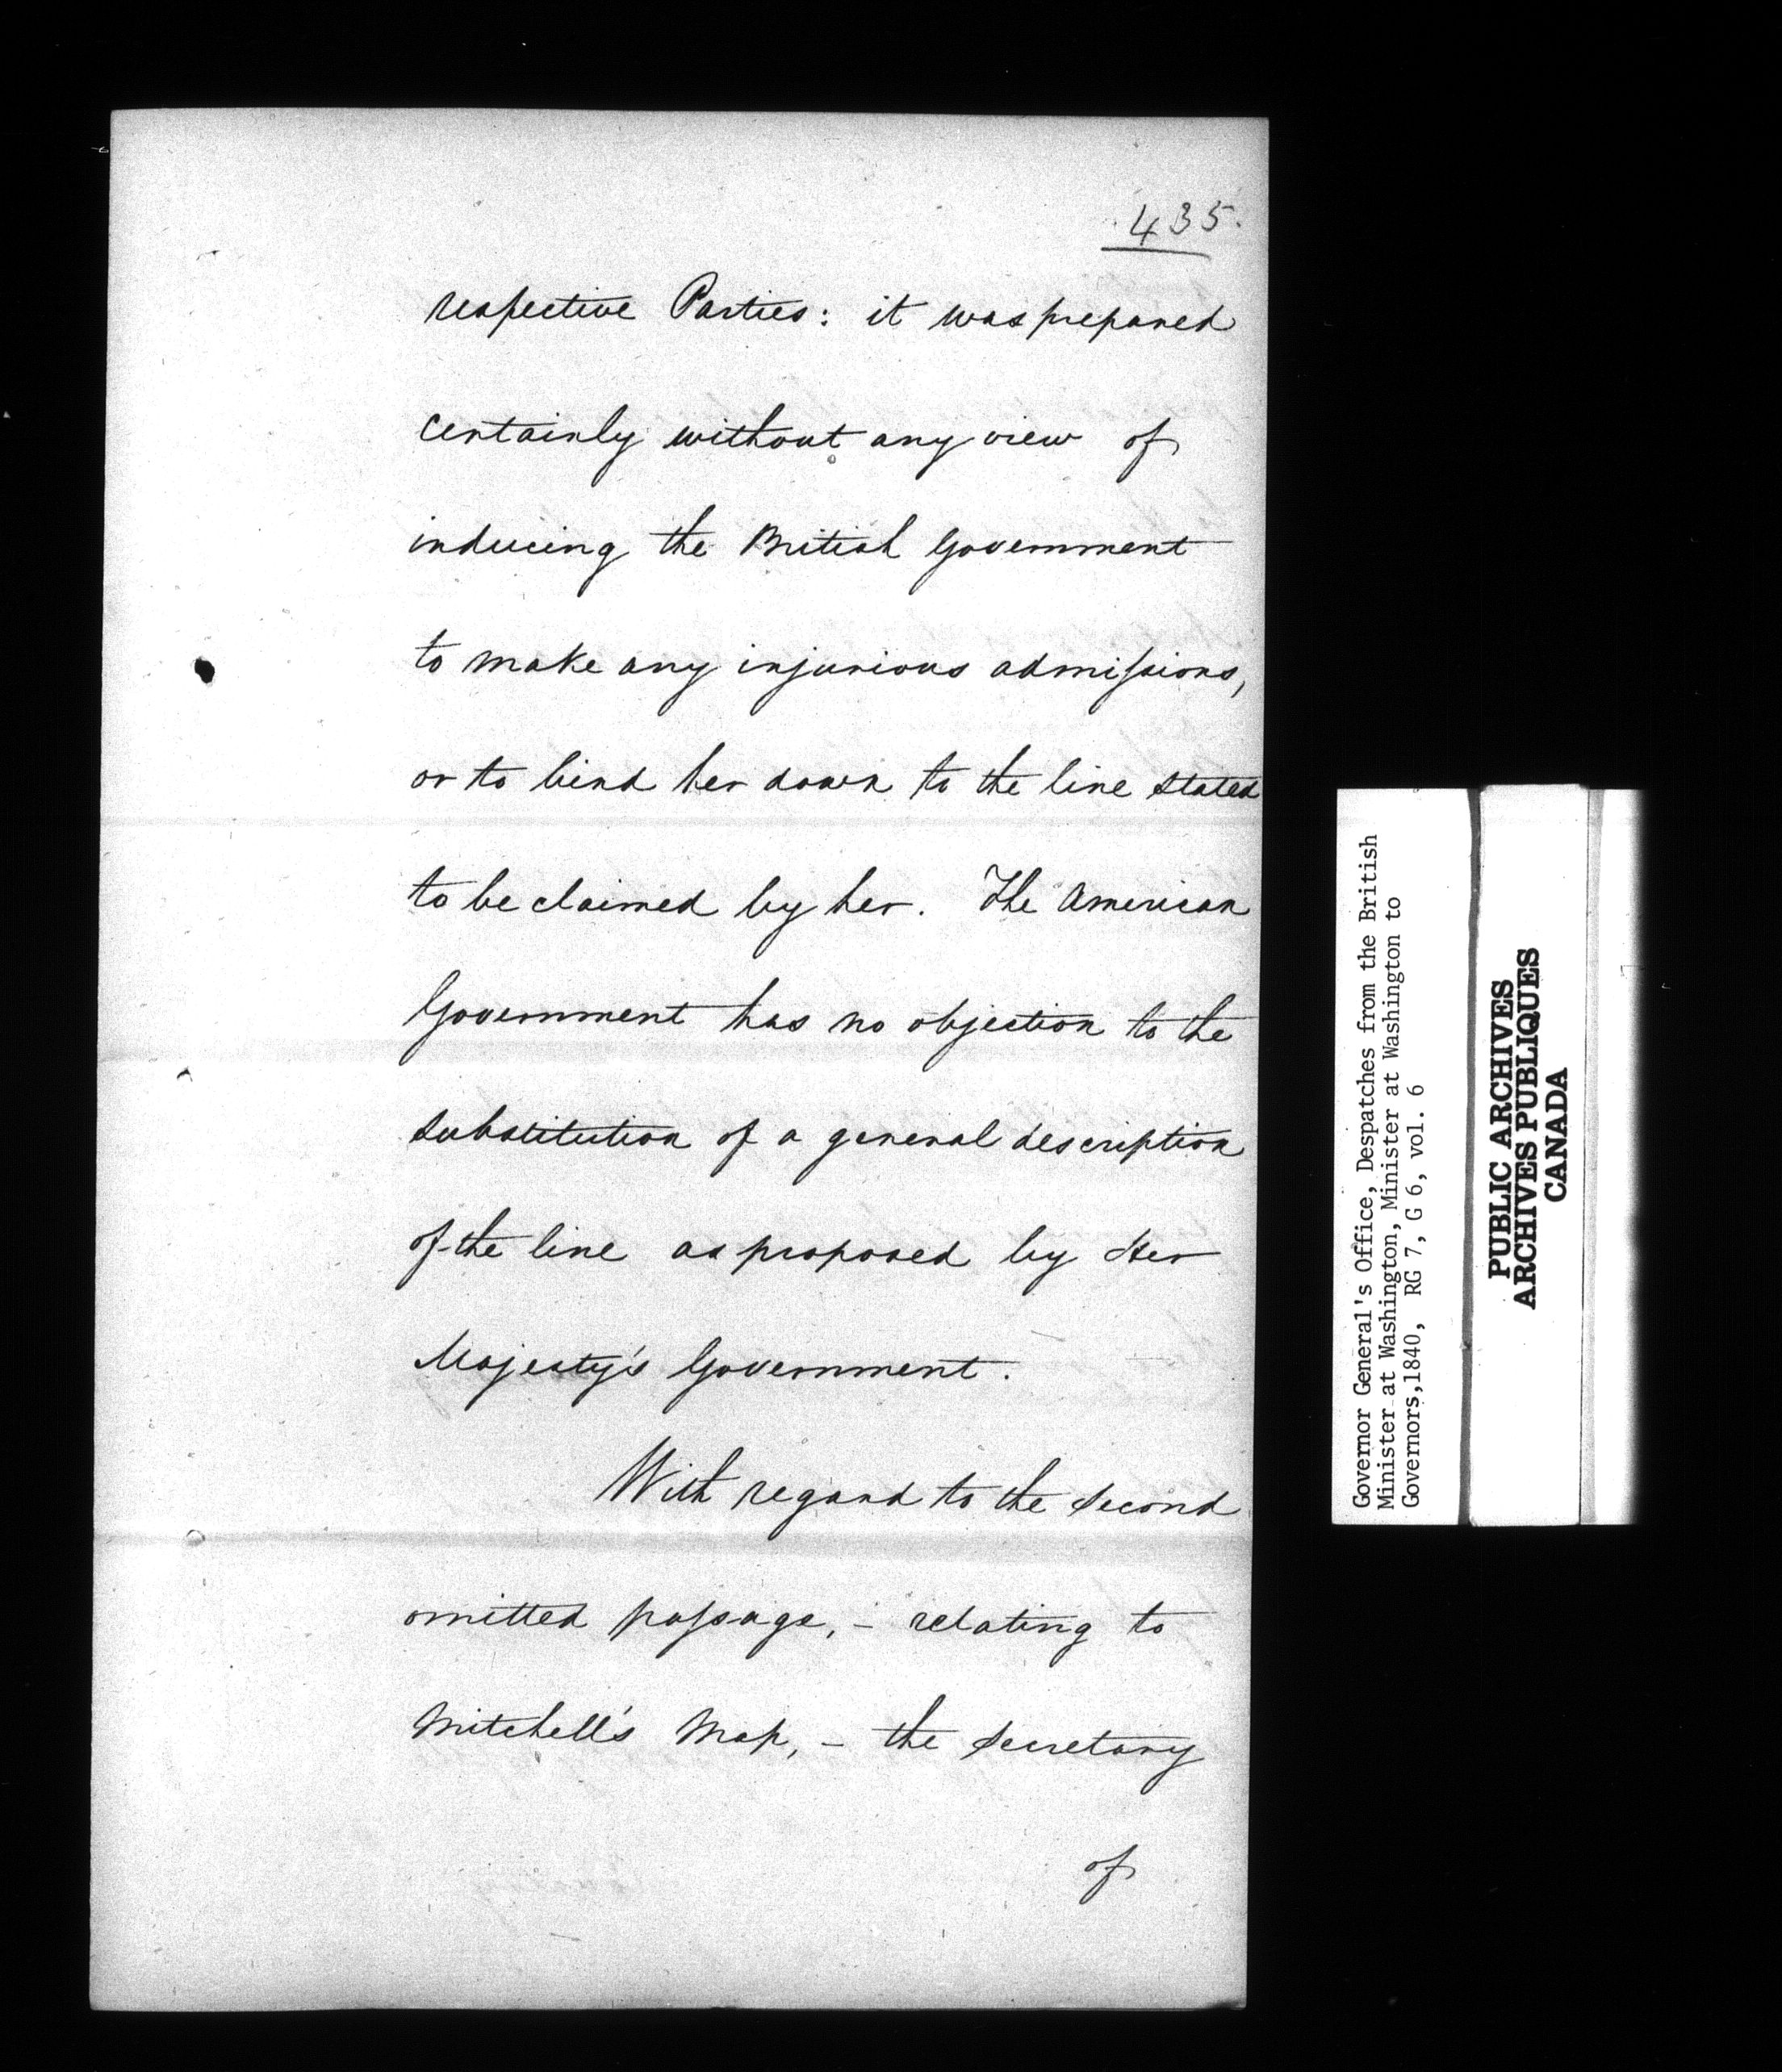 435.
respective Parties: it was prepared
certainly without any view of
inducing the British Government
to make any injurious admissions,
or to bind her down to the line stated
to be claimed by her. The American
Government has no objection to the
substitution of a general description
of the line as proposed by Her
Majesty's Government.
With regard to the second
omitted passage, – relating to
Mitchell's Map, – the Secretary
of
Governor General's Office, Despatches from the British
Minister at Washington, Minister at Washington to
Governors,1840, RG 7, G 6, vol. 6
PUBLIC ARCHIVES
ARCHIVES PUBLIQUES
CANADA